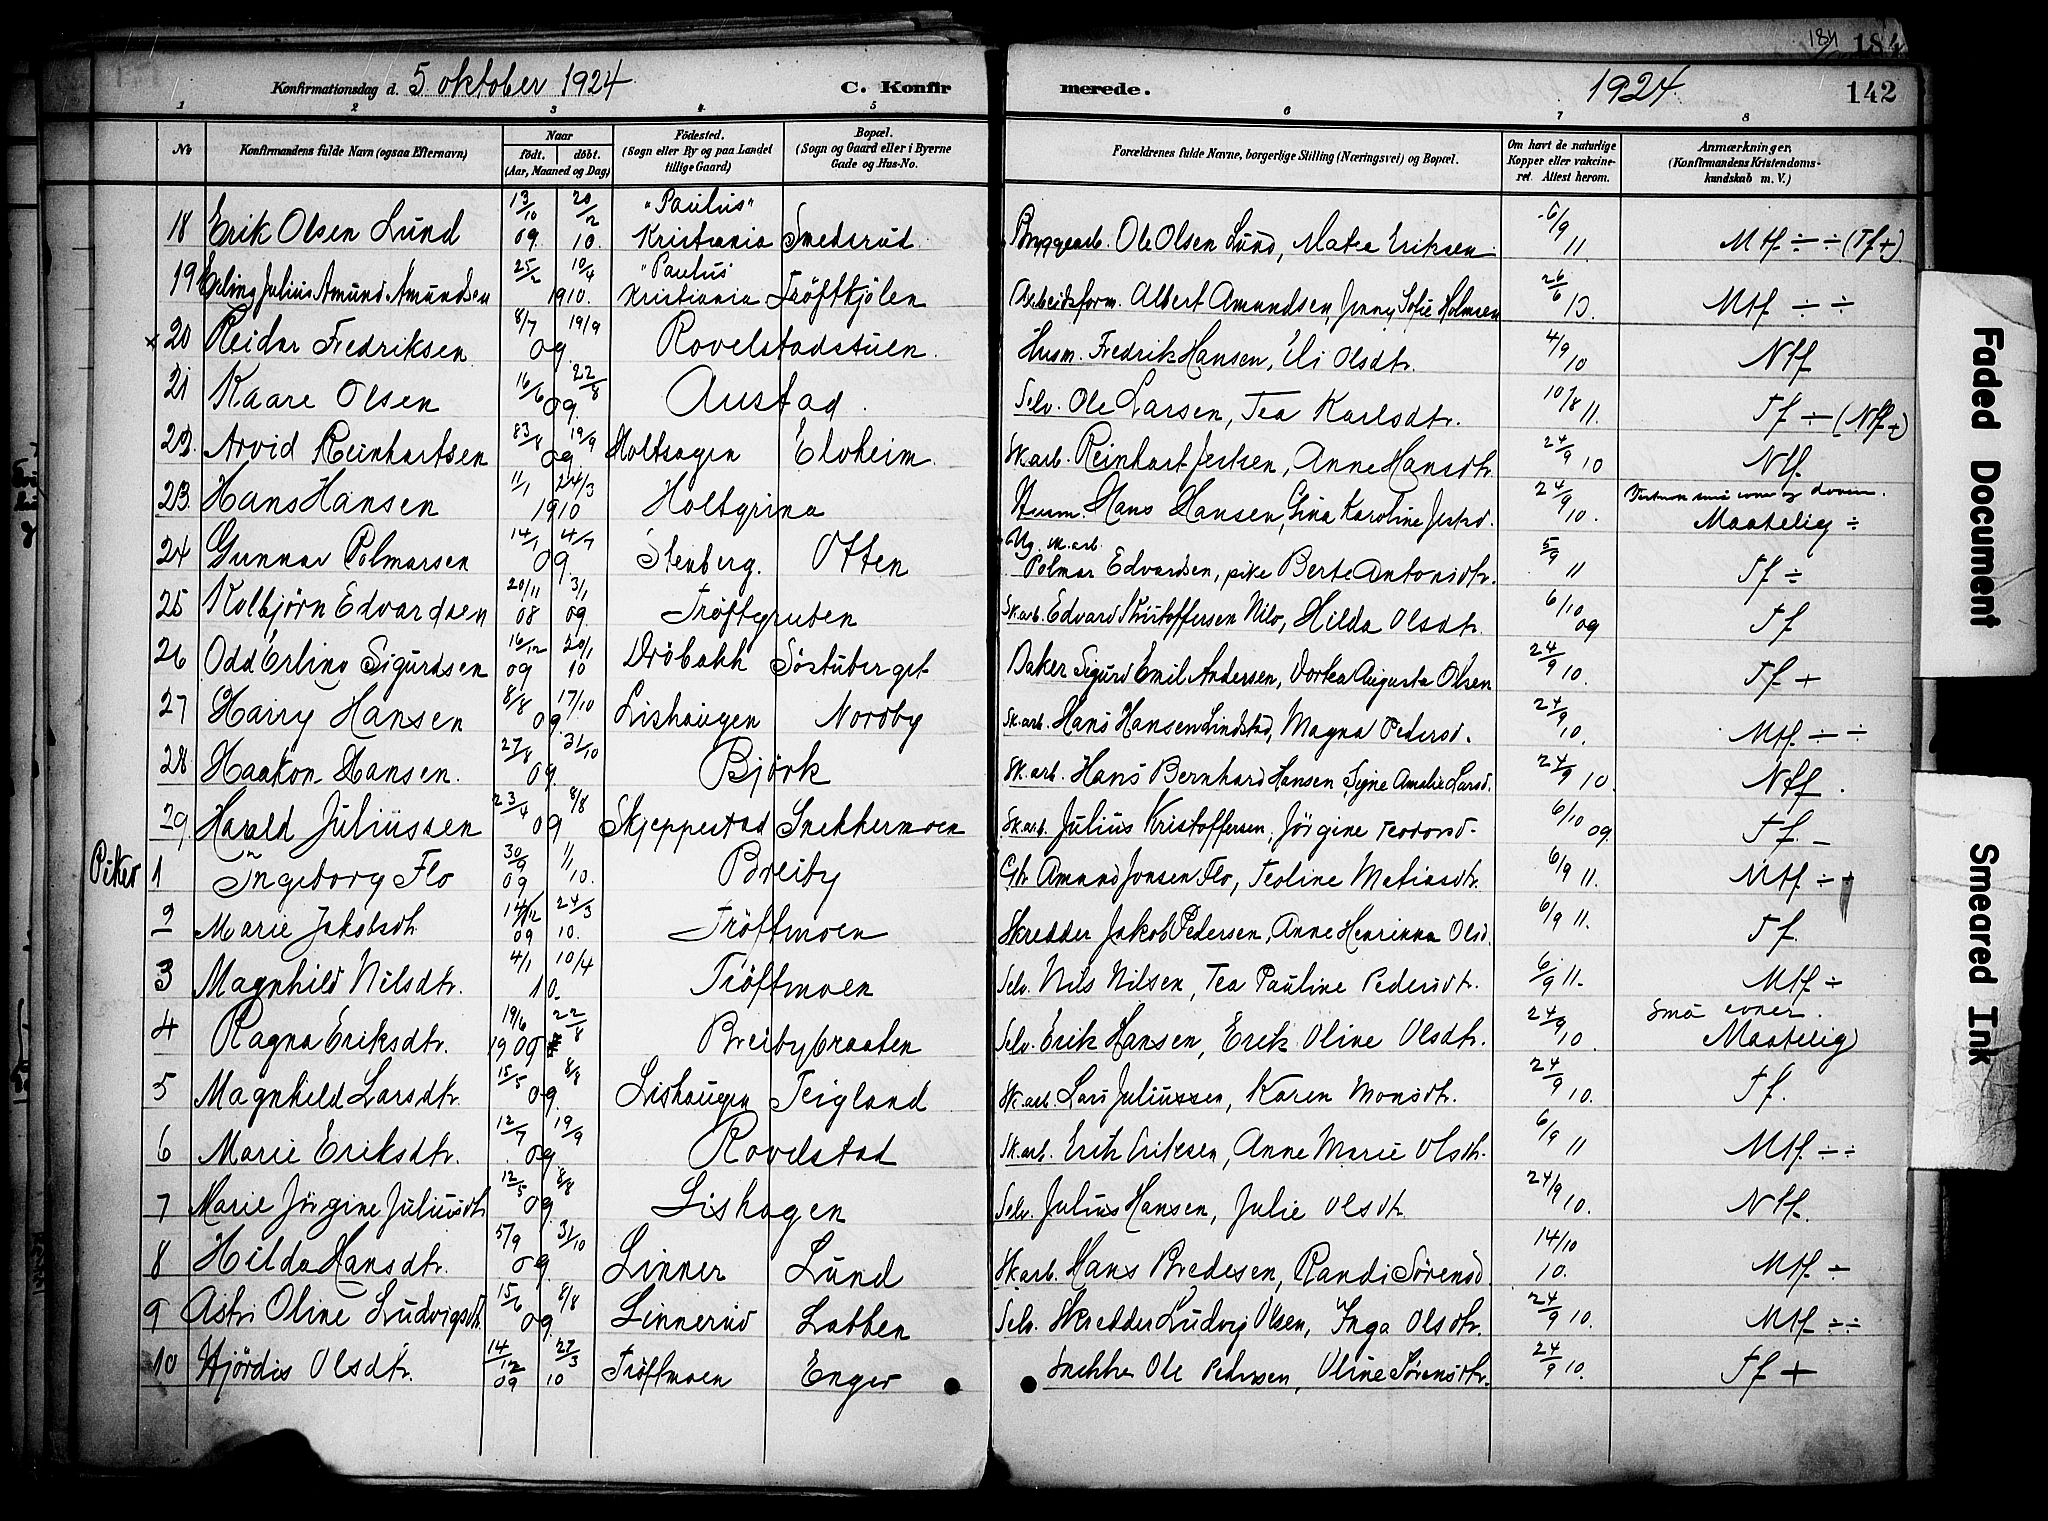 184 184
Konfirmationsdag d. 5 oktober 1924 C. Konfirmerede. 1924 142
1 2 3 4 5 6 7 8
No Konfirmandens fulde Navn (ogsaa Efternavn) Naar født. døbt. (Aar, Maaned og Dag) Fødested. (Sogn eller By og paa Landet tillige Gaard) Bopæl. (Sogn og Gaard eller i Byerne Gade og Hus-No. Forældrenes fulde Navne, borgerlige Stilling (Næringsvei) og Bopæl. Om havt de naturlige Kopper eller vakcineret. Attest herom. Anmærkninger. (Konfirmandens Kristendomskundskab m. V.)
18 Erik Olsen Lund 13/10 09. 20/12 10. "Paulus" Kristiania Smedsrud. Bryggearb. Ole Olsen Lund, Matea Eriksen 6/9 11. Mtf ÷ ÷ (Tf +)
19 Erling Julius Amund Amundsen 25/2 10/4 1910. "Paulus" Kristiania Tröftkjölen Arbeidsform. Albert Amundsen, Jenny Sofie Holmsen 26/6 13. Mtf ÷ ÷
x 20 Reidar Fredriksen 8/7 19/9 09. Rovelstadstuen. Husm. Fredrik Hansen, Eli Olsdtr. 4/9 10 Ntf
21 Kaare Olsen 16/6 22/8 09. Austad. Selv. Ole Larsen, Tea Karlsdtr. 10/8 11. Tf ÷ (Ntf +)
22. Arvid Reinhartsen 19/9 09 Holtsagen Elvheim. Sk arb. Reinhart Jensen, Anne Hansdtr. 24/9 10 Ntf.
23. Hans Hansen 11/1 24/3 1910 Holtgrina Husm. Hans Hansen, Gina Karoline 24/9 10. små evner og doven. Maatelig ÷
24 Gunnar Polmarsen 14/1 4/7 09. Stenberg. Otten Ug. sk. arb. Polmar Edvardsen, pike Berte Antonsdtr. 5/9 11 Tf ÷
25 Kolbjörn Edvardsen 20/11 08 3/1 09. Tröftgruben Sk arb. Edvard Kristoffersen Nilo, Hilda Olsdtr. 6/10 09 Tf
26 Odd Erling Sigurdsen 16/12 09 20/1 10 Dröbakk Söstuberget Baker Sigurd Emil Andersen, Dortea Augusta Olsen 24/9 10. Tf +
27 Harry Hansen 8/8 17/10 09 Lishaugen Nordby Sk. arb. Hans Hansen Lindstad, Magna Pedersd. 24/9 10. Mtf. ÷ ÷
28 Haakon Hansen. 27/8 31/10 09. Björk Sk. arb. Hans Bernhard Hansen, Signe Amalie Larsd. 24/9 10. Ntf.
29 Harald Juliussen 23/4 8/8 09 Skjeppestad Snekkermoen Sk. arb. Julius Kristoffersen, Jörgine Teodorsd. 6/10 09. Tf. -
Piker 1 Ingeborg Flo 30/9 09 1/1 10. Breiby Gbr. Amund Jonsen Flo, Teoline Matiasdtr. 6/9 11. Mtf. ÷ ÷
2 Marie Jakobsdtr. 14/12 09 24/3 10. Tröftmoen Skredder Jakob Pedersen, Anne Henrikka Olsd. 6/9 11. Tf.
3 Magnhild Nilsdtr. 4/1 10/4 10. Tröftmoen Selv. Nils Nilsen, Tea Pauline Pedersdtr. 6/9 11. Mtf. ÷
4 Ragna Eriksdtr. 19/6 22/8 1909 Breibybraaten Selv. Erik Hansen, Erik. Oline Olsdtr. 24/9 10. Små evner. Maatelig
5 Magnhild Larsdtr. 15/5 8/8 09. Lishaugen Teigland Sk. arb. Lars Juliussen, Karen Monsdtr. 24/9 10. Tf.
6 Marie Eriksdtr. 12/7 19/9 09 Rovelstad Sk. arb. Erik Eriksen, Anne Marie Olsdtr. 6/9 11 Mtf. ÷ ÷
7 Marie Jörgine Juliusdtr 12/5 8/8 09. Lishagen Selv. Julius Hansen, Julie Olsdtr. 24/9 10. Ntf.
8 Hilda Hansdtr. 5/9 31/10 09. Linner Lund Sk arb. Hans Bredesen, Randi Sörensd. 14/10 10. Mtf. ÷
9 Astri Oline Ludvigsdtr. 15/6 8/8 09. Linnerud Labben Selv. Skredder Ludvig Olsen, Inga Olsdtr. 24/9 10. Mtf ÷ ÷
10 Hjördis Olsdtr. 14/12 09 27/3 10 Tröftmoen Enger Snekker Ole Pedersen, Oline Sörensdtr. 24/9 10. Tf +
Faded Document
Smeared Ink